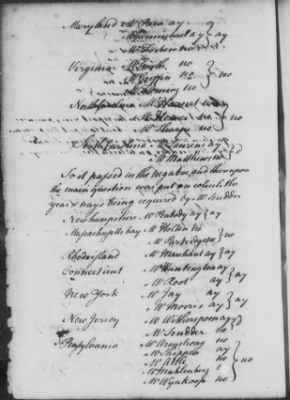 Maryland Mr Paca ay
Mr Carmichael ay } ay
Mr Forbes no
Virginia Mr Smith no
Mr Griffin no } no
Mr Fleming no
North Carolina Mr
Mr no } no
Mr Sharpe no
South Carolina Mr Laurens ay
Mr Matthews no
So it passed in the negative and thereupon
the main question was put on which the
yeas & nays being required by Mr Scudder
New hampshire Mr Peabody ay } ay
Massachusetts bay Mr Holten no
Mr Partridge no } no
Rhodeisland Mr Marchant ay } ay
Connecticut Mr Huntington ay
Mr Root ay } ay
New York Mr Jay ay
Mr Morris ay } ay
New Jersey Mr Witherspoon ay
Mr Scudder no
Pensylvania Mr Armstrong no
Mr Shippen ay
Mr Atlee no } no
Mr Muhlenberg
Mr Wynkoop no